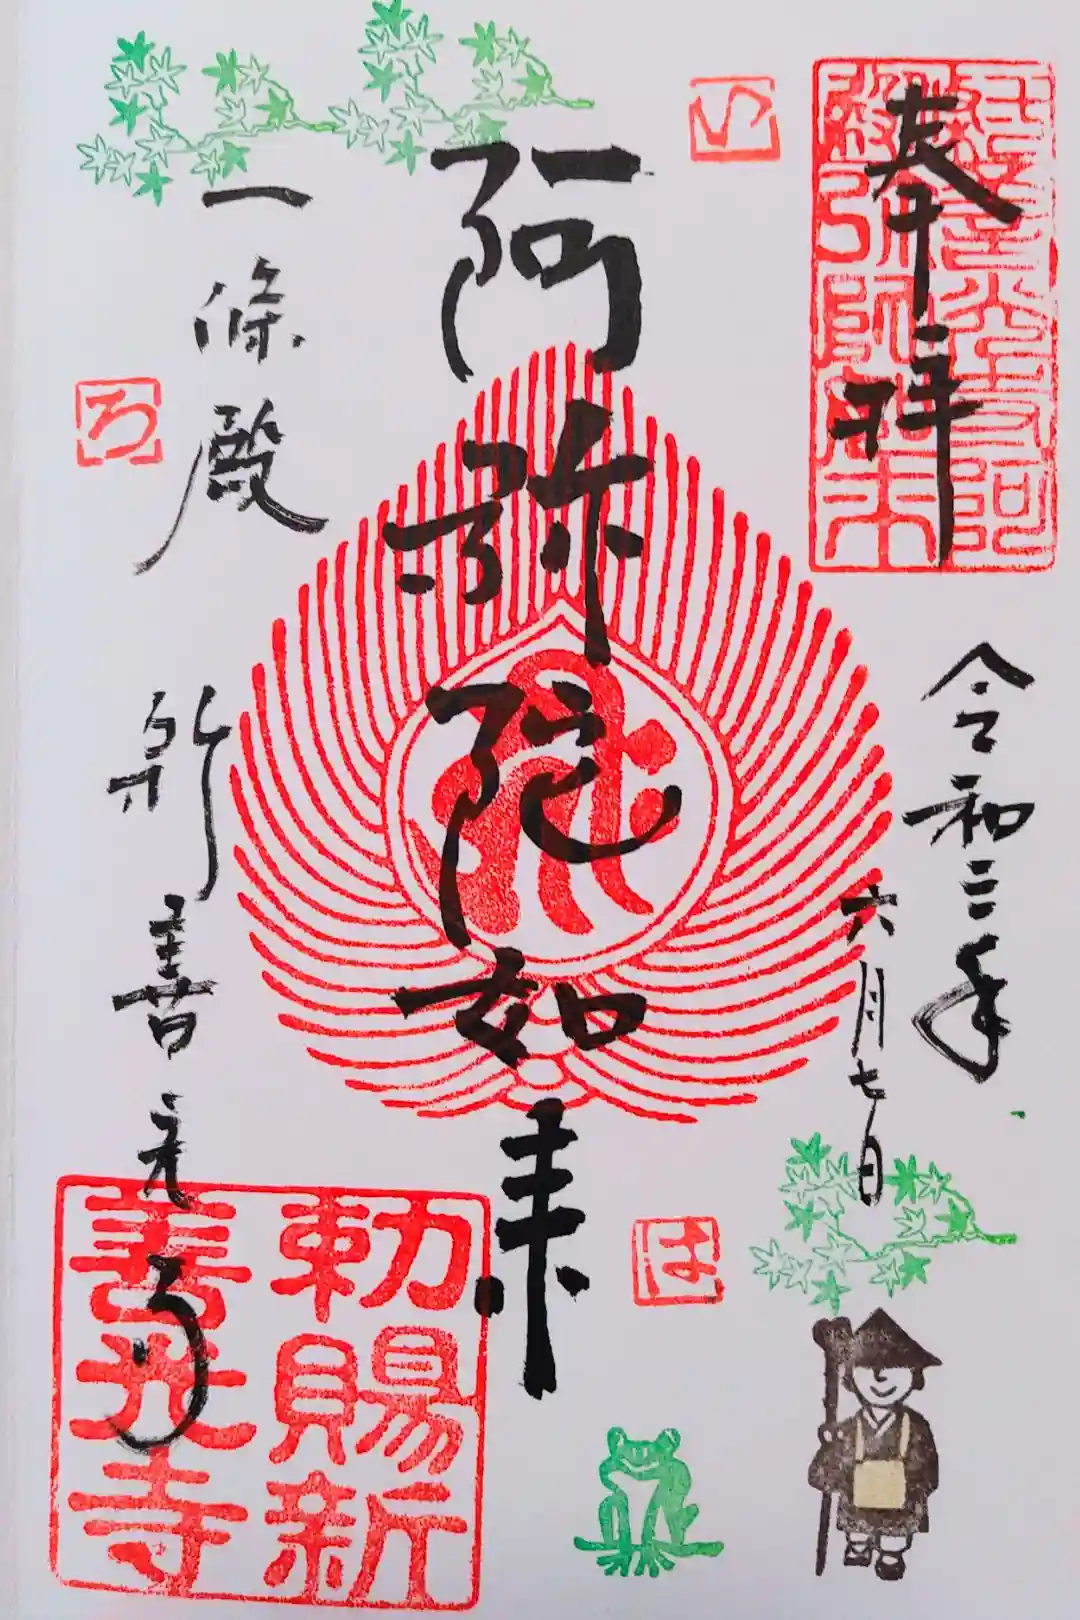 奉拝
令和三年
六月七日
阿弥陀如来
一條殿
新善光寺
い
ろ
は
勅賜新
善光寺